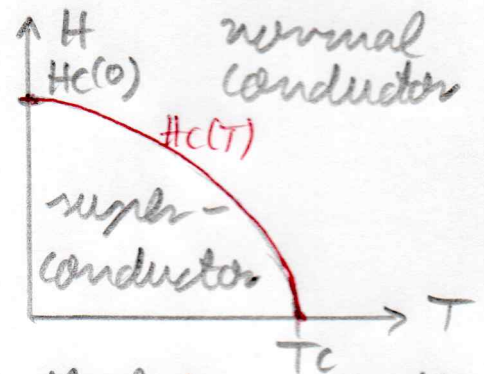 H
normal
Hc(0)
conductor
Hc(T)
super-
conductor
T
Tc